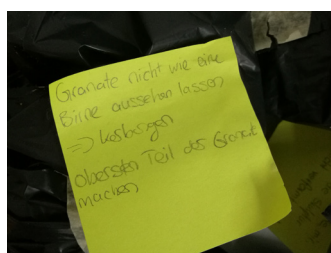 Granate nicht wie eine
Birne aussehen lassen
=>
obersten Teil des Granat
machen